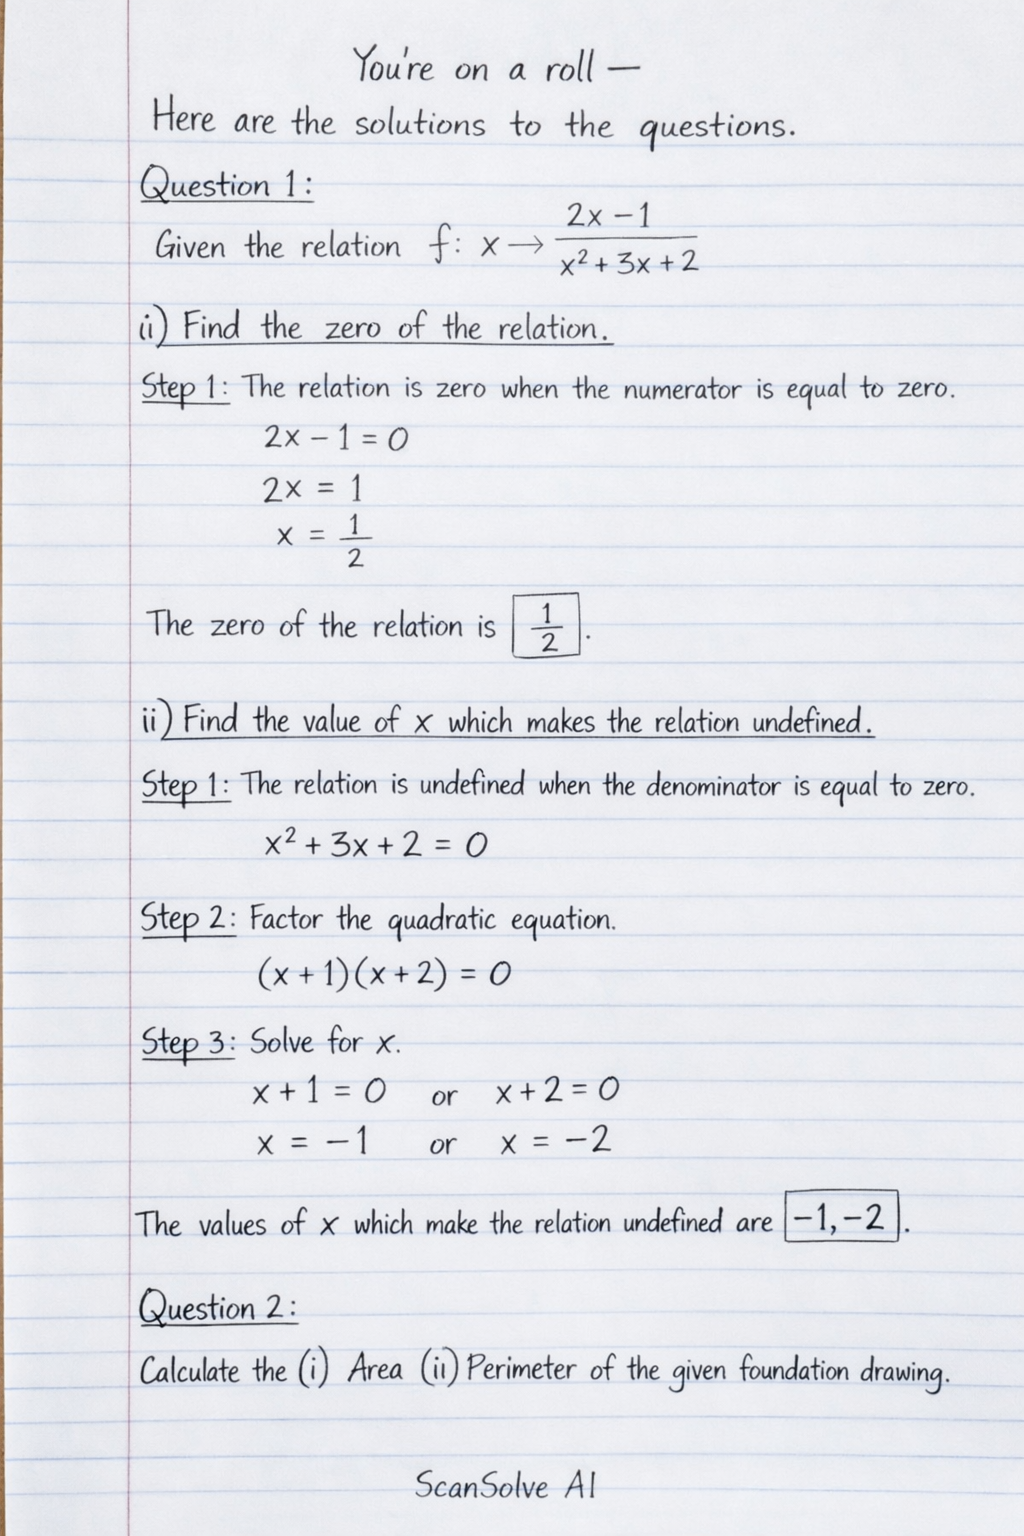 You're on a roll —
Here are the solutions to the questions.
Question 1:
Given the relation f: x → (2x − 1)/(x² + 3x + 2)
(i) Find the zero of the relation.
Step 1: The relation is zero when the numerator is equal to zero.
2x − 1 = 0
2x = 1
x = 1/2
The zero of the relation is 1/2.
ii) Find the value of x which makes the relation undefined.
Step 1: The relation is undefined when the denominator is equal to zero.
x² + 3x + 2 = 0
Step 2: Factor the quadratic equation.
(x + 1)(x + 2) = 0
Step 3: Solve for x.
x + 1 = 0 or x + 2 = 0
x = −1 or x = −2
The values of x which make the relation undefined are −1, −2.
Question 2:
Calculate the (i) Area (ii) Perimeter of the given foundation drawing.
ScanSolve AI